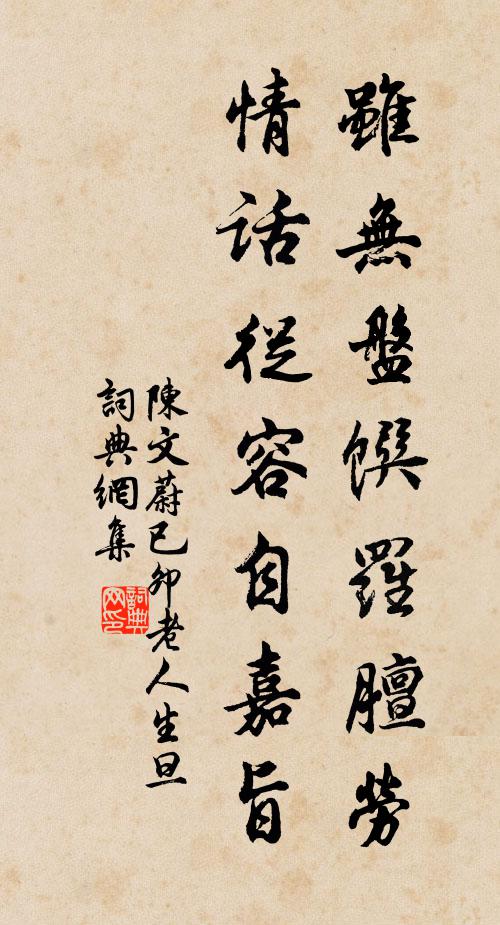 雖無盤饌羅膻勞
情話從容自嘉旨
陳文蔚已卯老人生旦
詞典網集
詞典网印